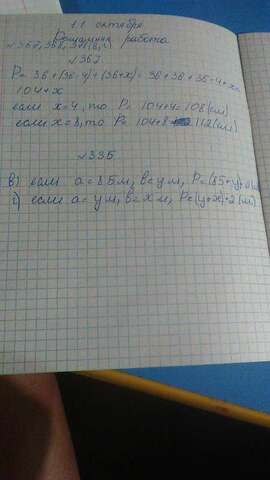 11 октября
Домашняя работа
№367, 368, 371(в,г)
№367
P= 36+(36-4)+(36+x)= 36+36+36-4+x=
104+x
если x=4, то P= 104+4=108(см)
если x=8, то P= 104+8= 112(см)
№335
в) если a=85м, b=yм, P=(85+y)·2(м)
г) если a=yм, b=xм, P=(y+x)·2(м)